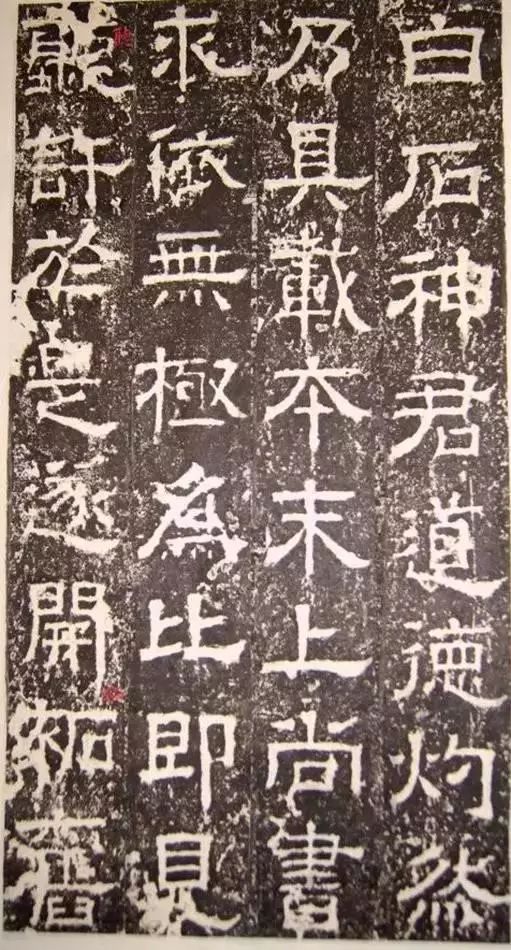 白石神君道德灼然
乃具載本末上尚書
求依無極為比即見
聽許於是遂開拓舊